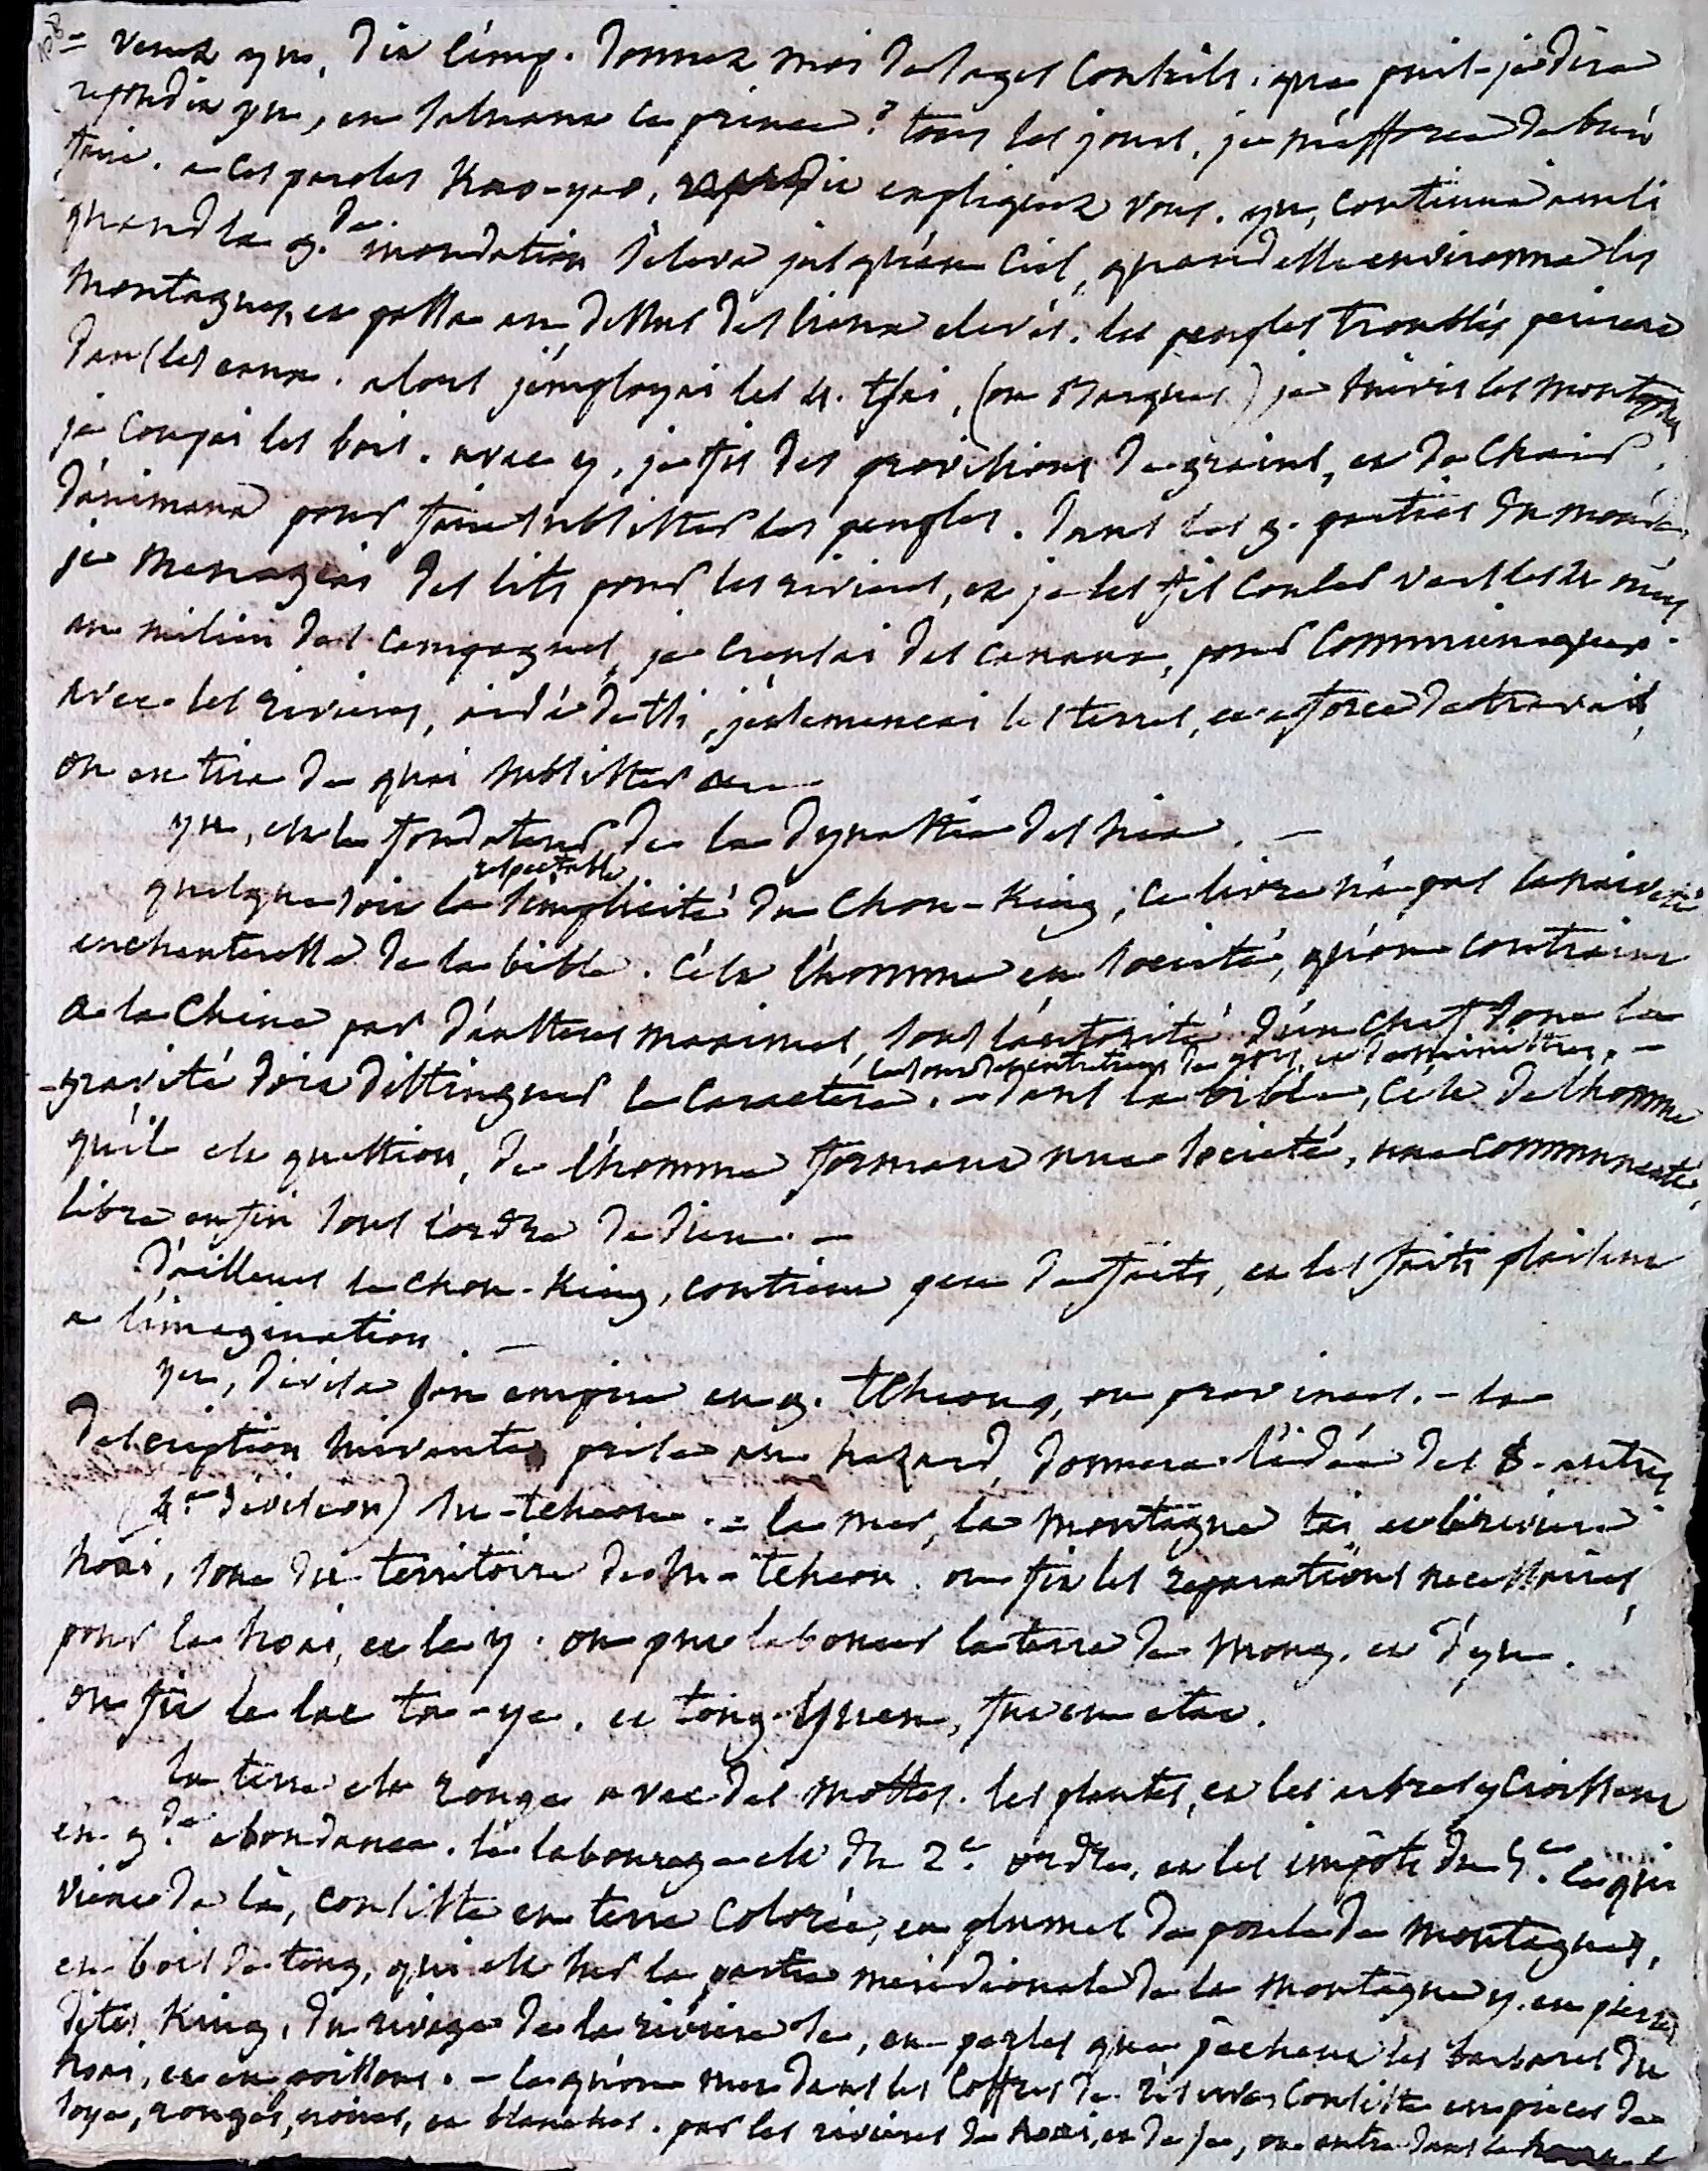 = venez yu, dit l'emp. donnez moi de sages conseils. que puis-je dire
repondit yu, en saluant le prince? tous les jours, je m'efforce de bien
faire. a ces paroles Kao-yao, dit expliquez vous. yu, continua ainsi
quand la g.de inondation s'eleva jusqu'au ciel, quand elle environna les
montagnes, et passa au dessus des lieux elevés. les peuples troublés perirent
dans les eaux. alors j'employai les 4. tsai, (ou Marques) je suivis les montagnes
je coupai les bois. avec y, je fis des provisions de grains, et de chair
d'animaux pour faire subsister les peuples. dans les 9. parties du monde,
je menageai des lits pour les rivieres, et je les fis couler vers les 4 mers
au milieu des campagnes, je creusai des canaux, pour communiquer
avec les rivieres, aidé de tsi, j'ensemencai les terres, et a force de travail,
on en tira de quoi subsister
yu, est le fondateur de la dynastie des hia. —
quelque soit la respectable simplicité du Chou-King, ce livre n'a pas la naiveté
enchanteresse de la bible. c'est l'homme en societé, qu'on contraint
a la Chine par d'austeres maximes, sous l'autorité d'un chef dont la
gravité doit distinguer le caractere. ce sont des entretiens de rois, et de ministres. — dans la bible, c'est de l'homme
qu'il est question, de l'homme formant une societé, une communauté,
libre enfin sous l'ordre de dieu. —
d'ailleurs le chou-King, contient peu de faits, et les faits plaisent
a l'imagination. —
yu, divisa son empire en 9. tcheou, ou provinces. — la
description suivante prise au hazard, donnera l'idée des 8. autres
(4e division) su-tcheou. = la mer, la montagne tai, et la riviere
hoai, sont du territoire de su-tcheou. on fit les reparations necessaires,
pour la hoai, et le y. on put labourer la terre de mong. et d'yu.
on fit le lac ta-ye. et tong-yuen, fut en etat.
la terre est rouge avec des mottes. les plantes, et les arbres y croissent
en g.de abondance. le labourage est du 2e. ordre, et les impôts du 5.e ce qui
vient de là, consiste en terre colorée, en plumes de poule de montagnes,
en bois de tong, qui est sur la partie meridionale de la montagne y. en pierres
dites King, du rivage de la riviere se, en perles que pechent les barbares du
hoai, et en poissons. — ce qu'on met dans les coffres de reserves consiste en pieces de
soye, rouges, noires, et blanches. par les rivieres de hoai, et de se, on entre dans le